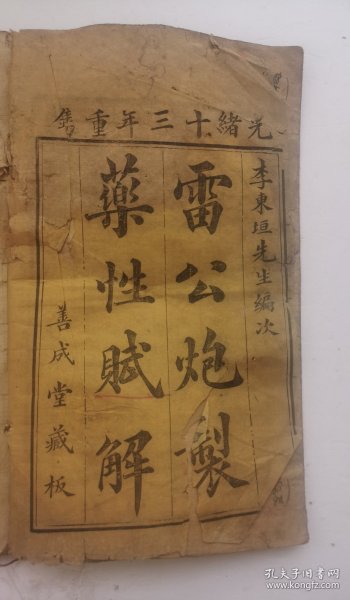 光緒十三年重鐫
李東垣先生編次
雷公炮製
藥性賦解
善成堂藏板
孔夫子旧书网
www.kongfz.com